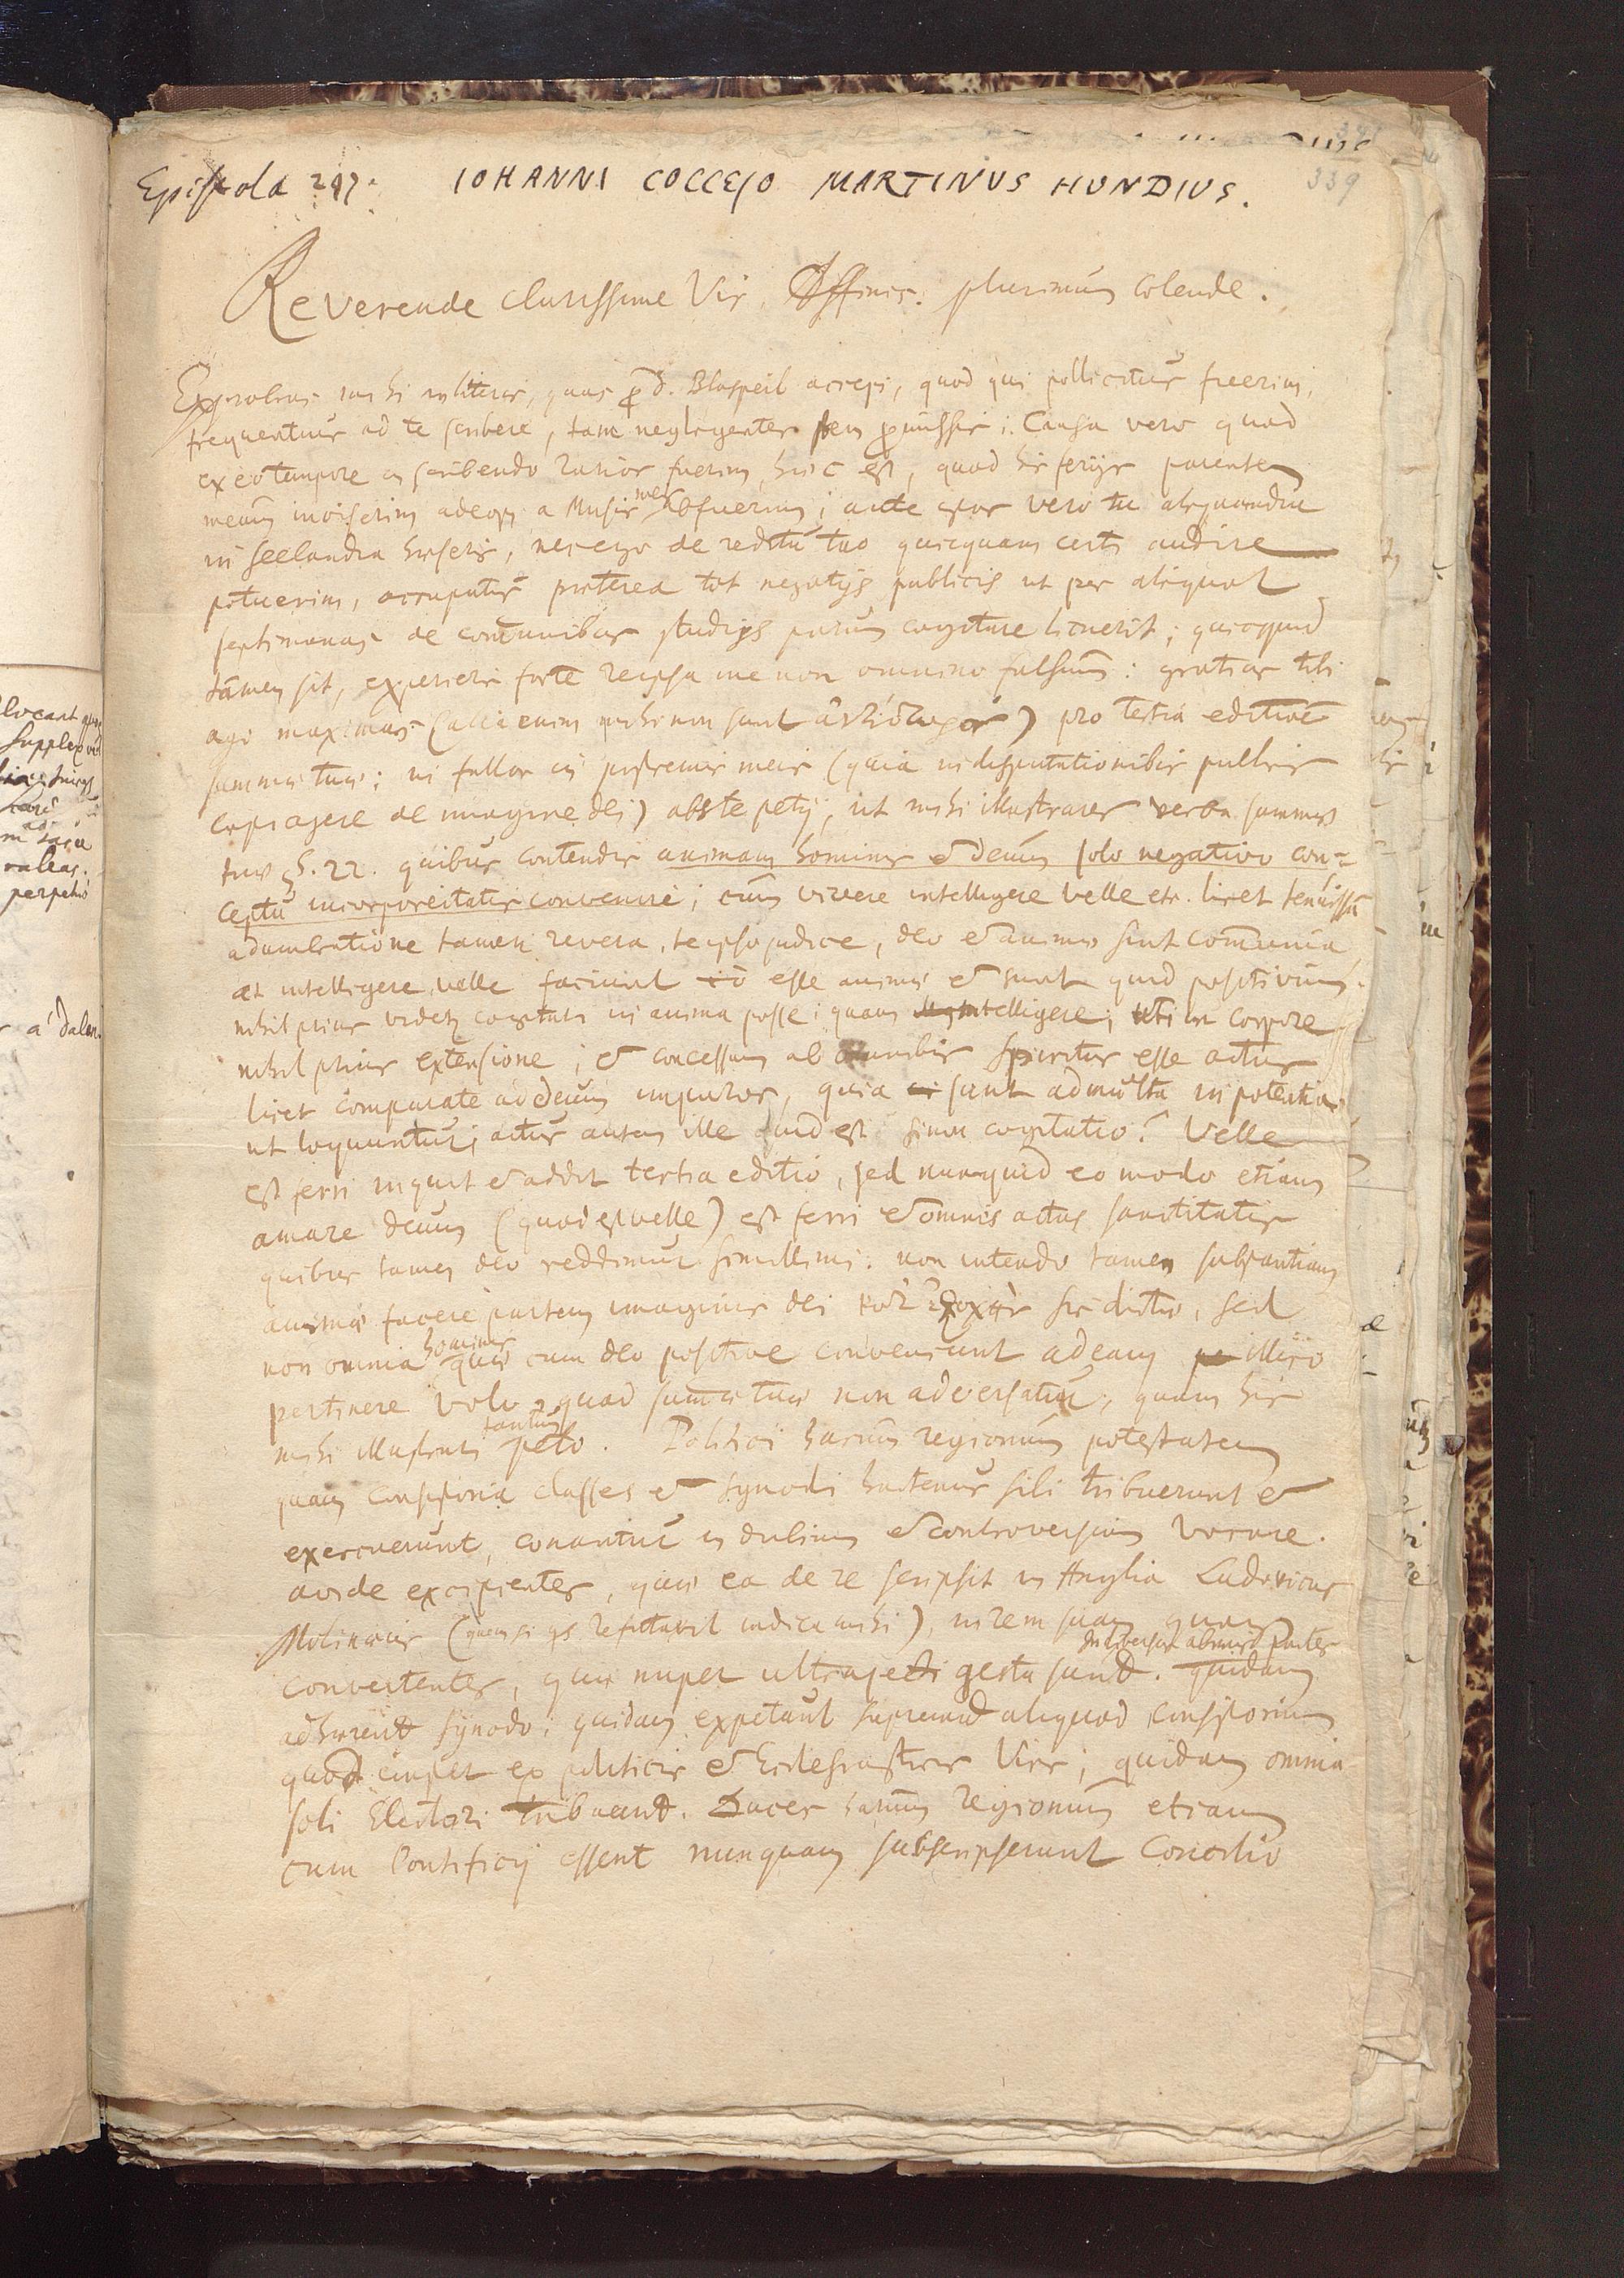 339
Epistola 247. IOHANNI COCCEJO MARTINUS HUNDIUS.
Reverende Clarissime Vir, Affinis plurimum colende.
Exprobras mihi in literis, quas per d. Blaspeil accepi, quod qui pollicitus fuerim,
frequentius ad te scribere, tam negligenter promissis: Causa vero quod
ex eo tempore in scribendo rarior fuerim, hæc est, quod his ferijs parentem
meam inviserim adeoque a Musis meis abfuerim; ante eas vero tu aliquamdiu
in Seelandia hæseris, nec ego de reditu tuo quicquam certi audire
potuerim, occupatus præterea tot negotijs publicis ut per aliquot
septimanas de communibus studijs parum cogitare licuerit; quicquid
tamen sit, experieris forte reipsa me non omnino falsum: gratias tibi
ago maximas (alia enim mihi non sunt) pro tertia editione
summæ tuæ: ni fallor in postremis meis (quia in disputationibus publicis
cœpi agere de imagine dei) abs te petij, ut mihi illustrares verba summæ
tuæ §. 22. quibus contendis animam hominis & deum solo negativo con-
ceptu incorporeitatis convenire; cum vivere intelligere velle etc. licet tenuissima
adumbratione tamen revera, te ipso judice, deo & animæ sint communia
at intelligere velle faciunt τὸ esse animæ & sunt quid positivum.
nihil prius videtur cogitari in anima posse quam intelligere; uti in corpore
nihil prius extensione; & concessum ab omnibus Spiritus esse actus
licet comparate ad deum impuros, quia sunt ad multa in potentia
ut loquuntur; actus autem ille quid est sinon cogitatio? Velle
est ferri inquit & addit tertia editio, sed nunquid eo modo etiam
amare deum (quod est velle) est ferri & omnis actus sanctitatis
quibus tamen deo reddimur simillimi. non intendo tamen substantiam
animæ facere partem imaginis dei κατ' ἐξοχὴν sic dictæ, sed
non omnia hominis quæ cum deo positive conveniunt ad eam illico
pertinere volo, quod summæ tuæ non adversatur, quam hic
mihi illustrari tantum peto. Politici harum regionum potestatem
quam consistoria classes & synodi hactenus sibi tribuerunt &
exercuerunt, conantur in dubium & controversiam vocare.
avide excipientes, quæ ea de re scripsit in Anglia Ludovicus
Molinæus (quem si quis refutavit indica mihi), in rem suam quoque
convertentes, quæ nuper ultrajecti gesta sunt. In diversas abeunt partes quidam
adhærent synodo; quidam expetunt supremum aliquod consistorium
quod constet ex politicis & Ecclesiasticis Viris; quidam omnia
soli Electori tribuunt. Duces harum regionum etiam
cum Pontificij essent nunquam subscripserunt Concilio